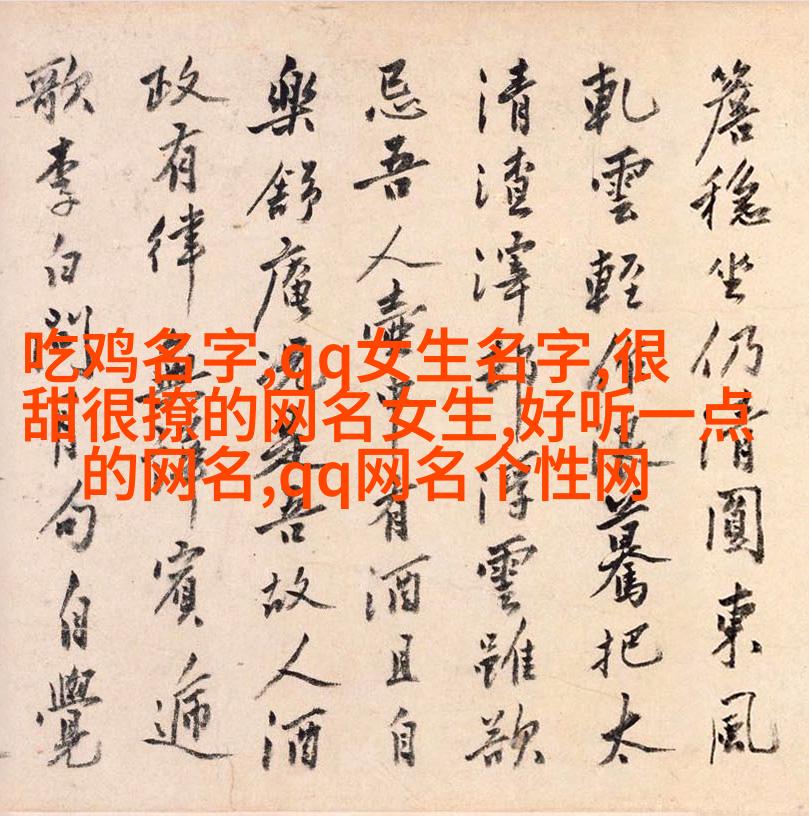 簷穩坐仍清圓東風
軋雲輕作驀把太
清渣滓却浮雲雖欲
忌吾人壺中有酒且自
樂舒庵況是吾故人酒
政有律賓遞
歌李白有句自覺
吃鸡名字,qq女生名字,很
甜很撩的网名女生,好听一点
的网名,qq网名个性网